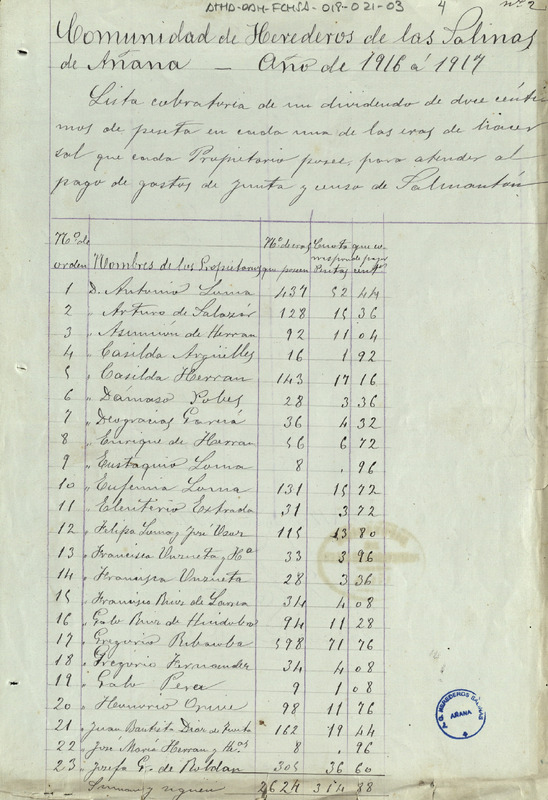 ATHA-DAH-FCHSA-018-021-03 4 nº 2
Comunidad de Herederos de las Salinas
de Añana — Año de 1916 á 1917
Lista cobratoria de un dividendo de doce cénti-
mos de peseta en cada una de las eras de hacer
sal que cada Propietario posee, para atender al
pago de gastos de Junta y censo de Salmantón
Nº de Nº de eras Cuota que co-
rresponde pagar
orden Nombres de los Propietarios que poseen Pesetas centos
1 D. Antonio Loma 437 52 44
2 " Arturo de Salazar 128 15 36
3 " Asunción de Herran 92 11 04
4 " Casilda Argüelles 16 1 92
5 " Casilda Herran 143 17 16
6 " Damaso Pobes 28 3 36
7 " Deogracias García 36 4 32
8 " Enrique de Herran 56 6 72
9 " Eustaquio Loma 8 " 96
10 " Eufemia Loma 131 15 72
11 " Eleuterio Extrada 31 3 72
12 " Filipa Loma y José 115 13 80
13 " Francisca Unzueta y Hª 33 3 96
14 " Francisca Unzueta 28 3 36
15 " Francisco Ruiz de Larrea 34 4 08
16 " Galo Ruiz de 94 11 28
17 " Gregorio Ribacoba 598 71 76
18 " Gregorio Fernandez 34 4 08
19 " Galo Perea 9 1 08
20 " Honorio 98 11 76
21 " Juan Bautista Diaz de 162 19 44
22 " José María Herran y Hnos 8 " 96
23 " Josefa G. de Roldan 305 36 60
Suman y siguen 2624 314 88
HEREDEROS SALINAS
AÑANA